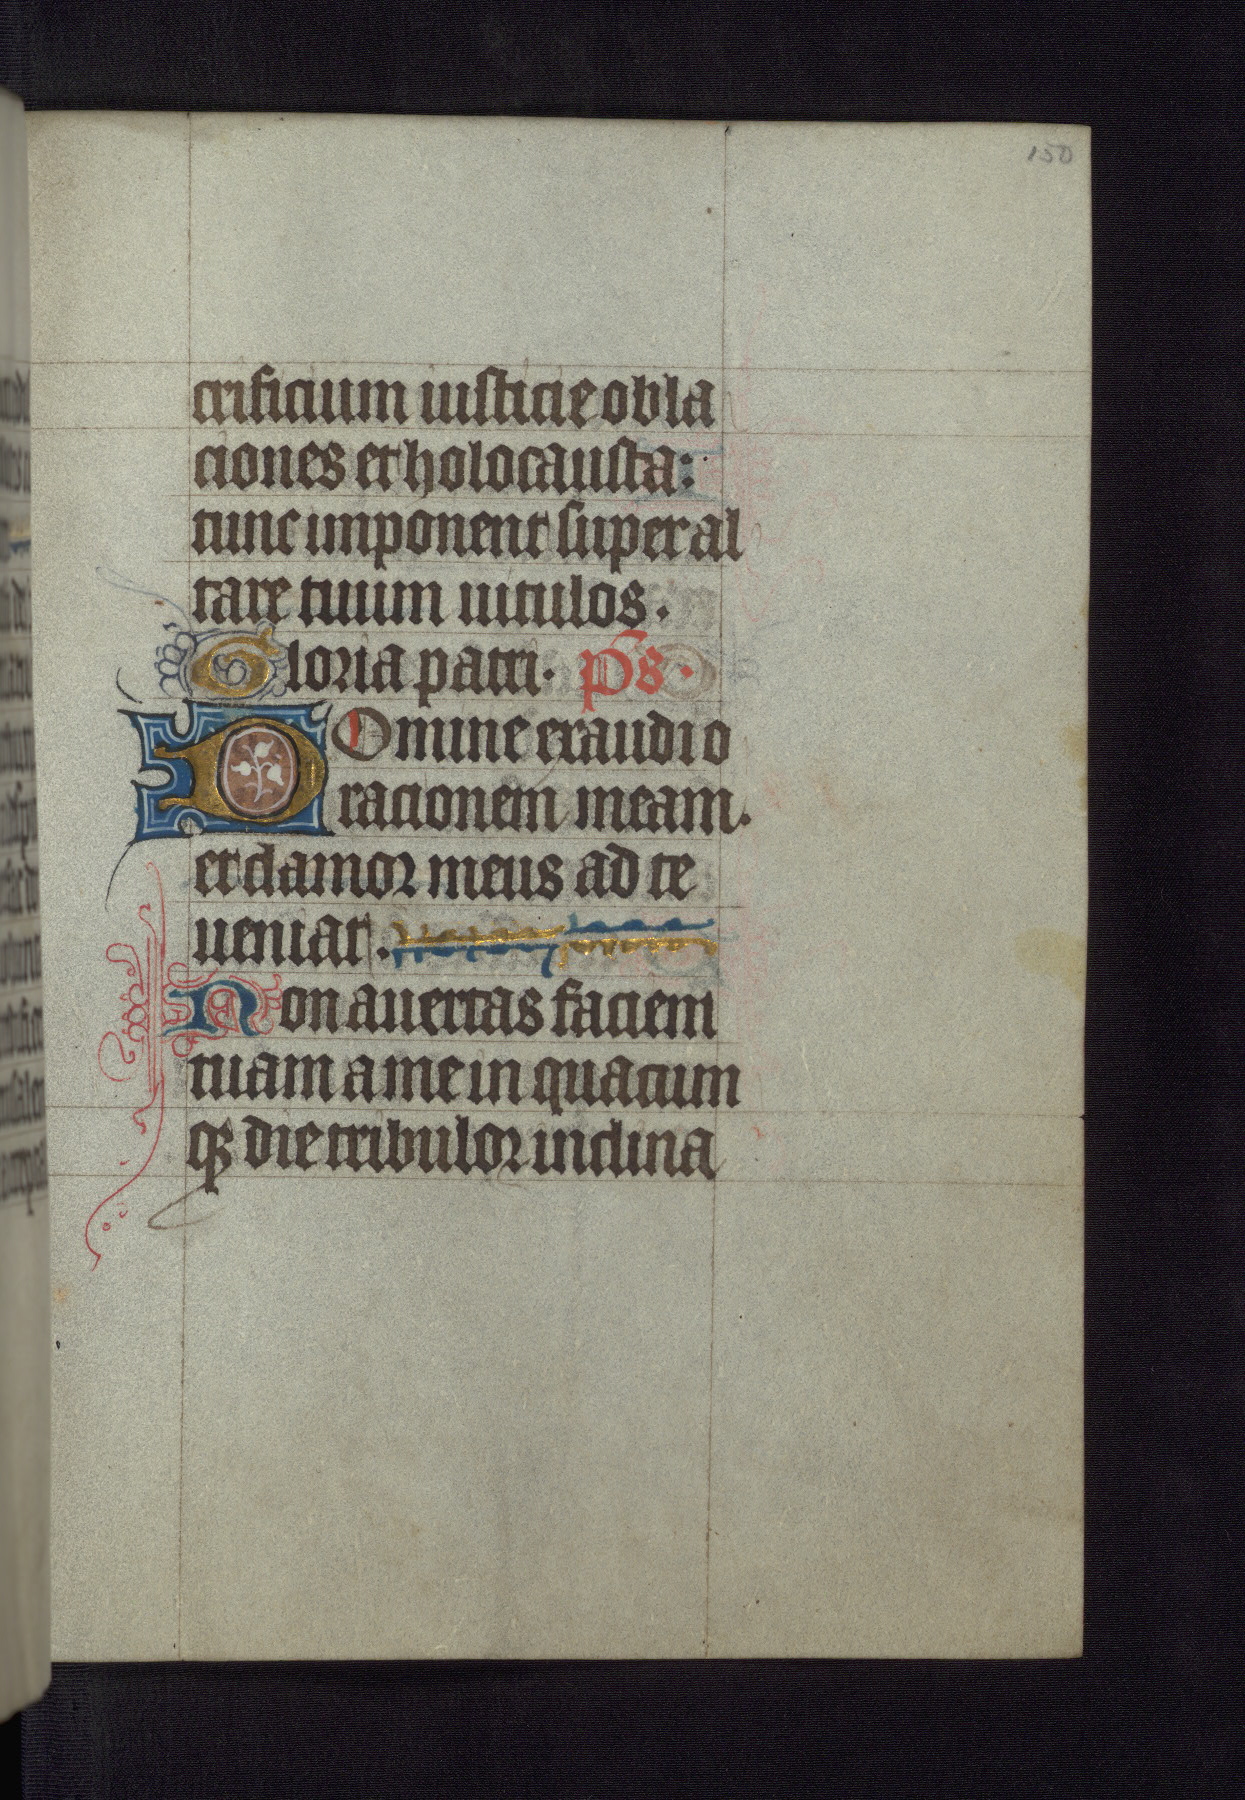 150
crificium iusticie obla
ciones et holocausta:
tunc imponent super al
tare tuum uitulos.
Gloria patri. ps.
DOmine exaudi o
racionem meam.
et clamor meus ad te
ueniat.
Non auertas faciem
tuam a me in quacum
qꝫ die tribulor inclina